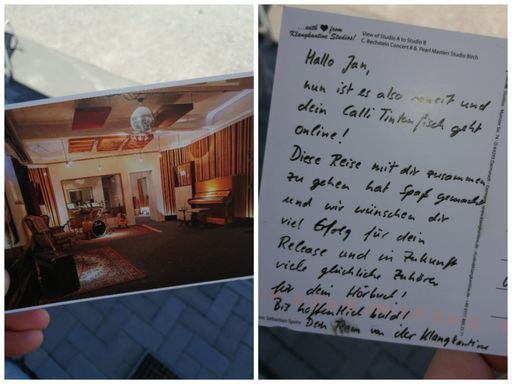 ...with ♥ from
Klangkantine Studios!
View of Studio A to Studio B
C. Bechstein Concert 8 & Pearl Masters Studio Birch
Hallo Jan,
nun ist es also soweit und
dein Calli Tintenfisch geht
online!
Diese Reise mit dir zusammen
zu gehen hat Spaß gemacht
und wir wünschen dir
viel Erfolg für dein
Release und in Zukunft
viele glückliche Zuhörer
für dein Hörbuch!
Bis hoffentlich bald!
Dein Team von der Klangkantine